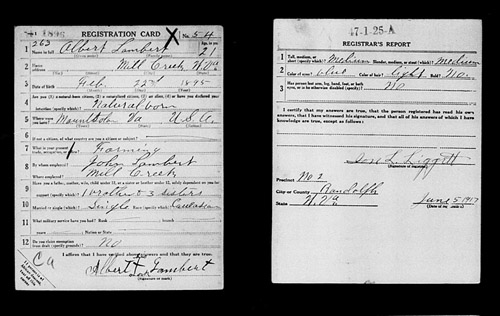 1896 REGISTRATION CARD X No. 54
1 263 Name in full Albert Lambert Age, in yrs. 21
2 Home address Mill Creek W. Va
3 Date of birth Feb 22nd 1895
4 Are you (1) a natural-born citizen, (2) a naturalized citizen, (3) an alien, (4) or have you declared your intention (specify which)? Natural born
5 Where were you born? Va U.S.A.
6 If not a citizen, of what country are you a citizen or subject?
7 What is your present trade, occupation, or office? Farming
8 By whom employed? John Lambert
Where employed? Mill Creek
9 Have you a father, mother, wife, child under 12, or a sister or brother under 12, solely dependent on you for support (specify which)? 1 brother & 3 sisters
10 Married or single (which)? Single Race (specify which)? Caucasian
11 What military service have you had? Rank branch
years Nation or State
12 Do you claim exemption from draft (specify grounds)? No
I affirm that I have verified above answers and that they are true.
Ca
Albert X Lambert
mark
(Signature or mark)
47-1-25-A
REGISTRAR'S REPORT
1 Tall, medium, or short (specify which)? Medium Slender, medium, or stout (which)? Medium
2 Color of eyes? Blue Color of hair? Light Bald? No
3 Has person lost arm, leg, hand, foot, or both eyes, or is he otherwise disabled (specify)? No
I certify that my answers are true, that the person registered has read his own answers, that I have witnessed his signature, and that all of his answers of which I have knowledge are true, except as follows:
L. Liggett
(Signature of registrar)
Precinct No 2
City or County Randolph
State W. Va June 5 1917
(Date of registration)